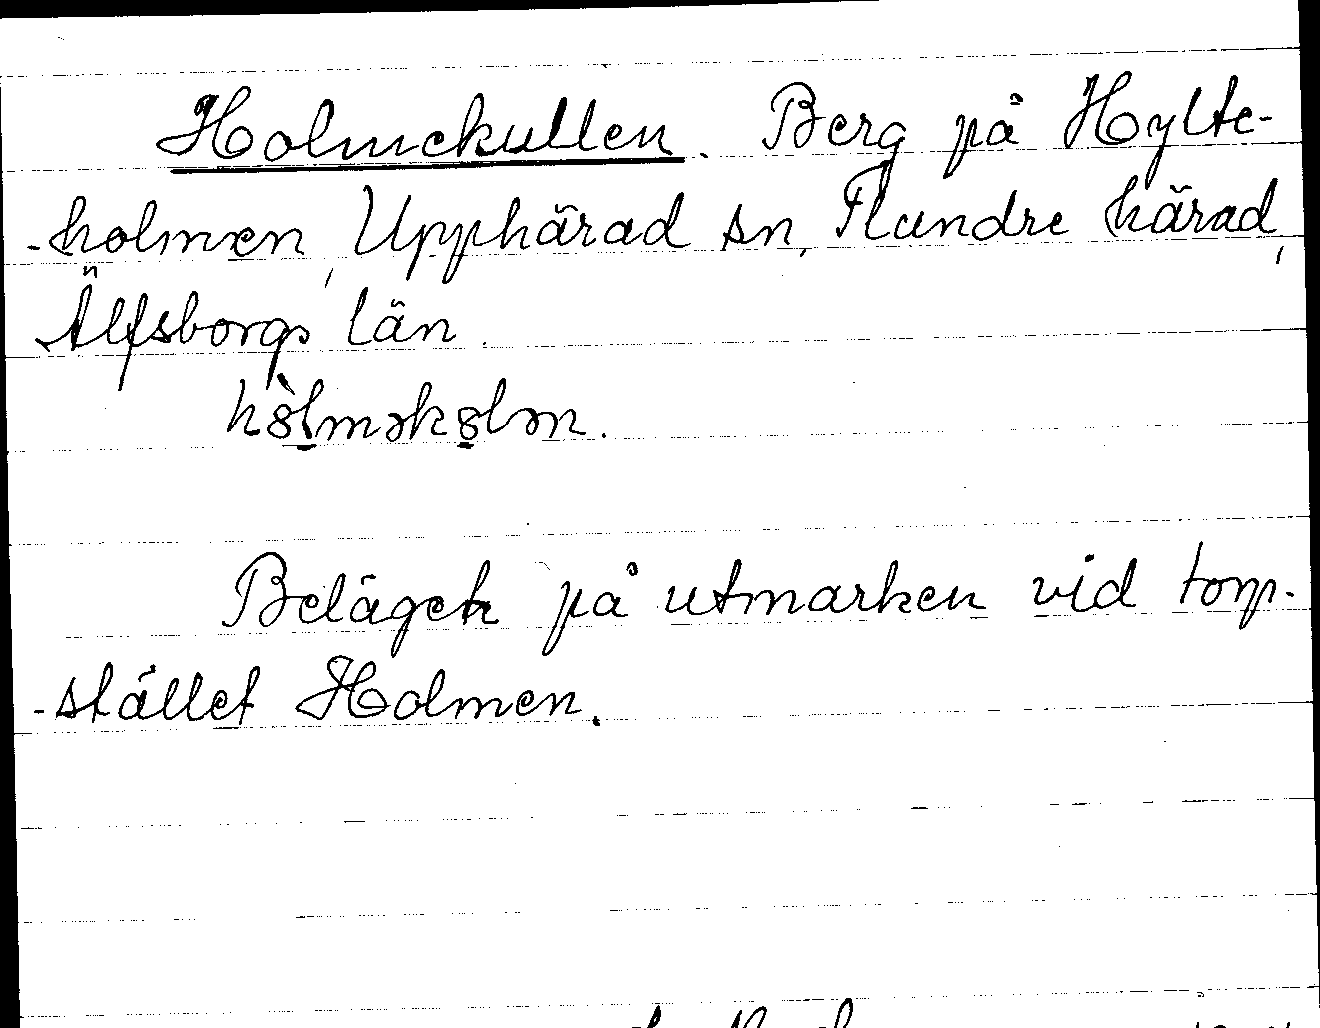 Holmekullen. Berg på Hylte-
-holmen, Upphärad sn, Flundre härad,
Älfsborgs län.
hò̤lməko̤lən.
Belägen på utmarken vid torp-
-stället Holmen.